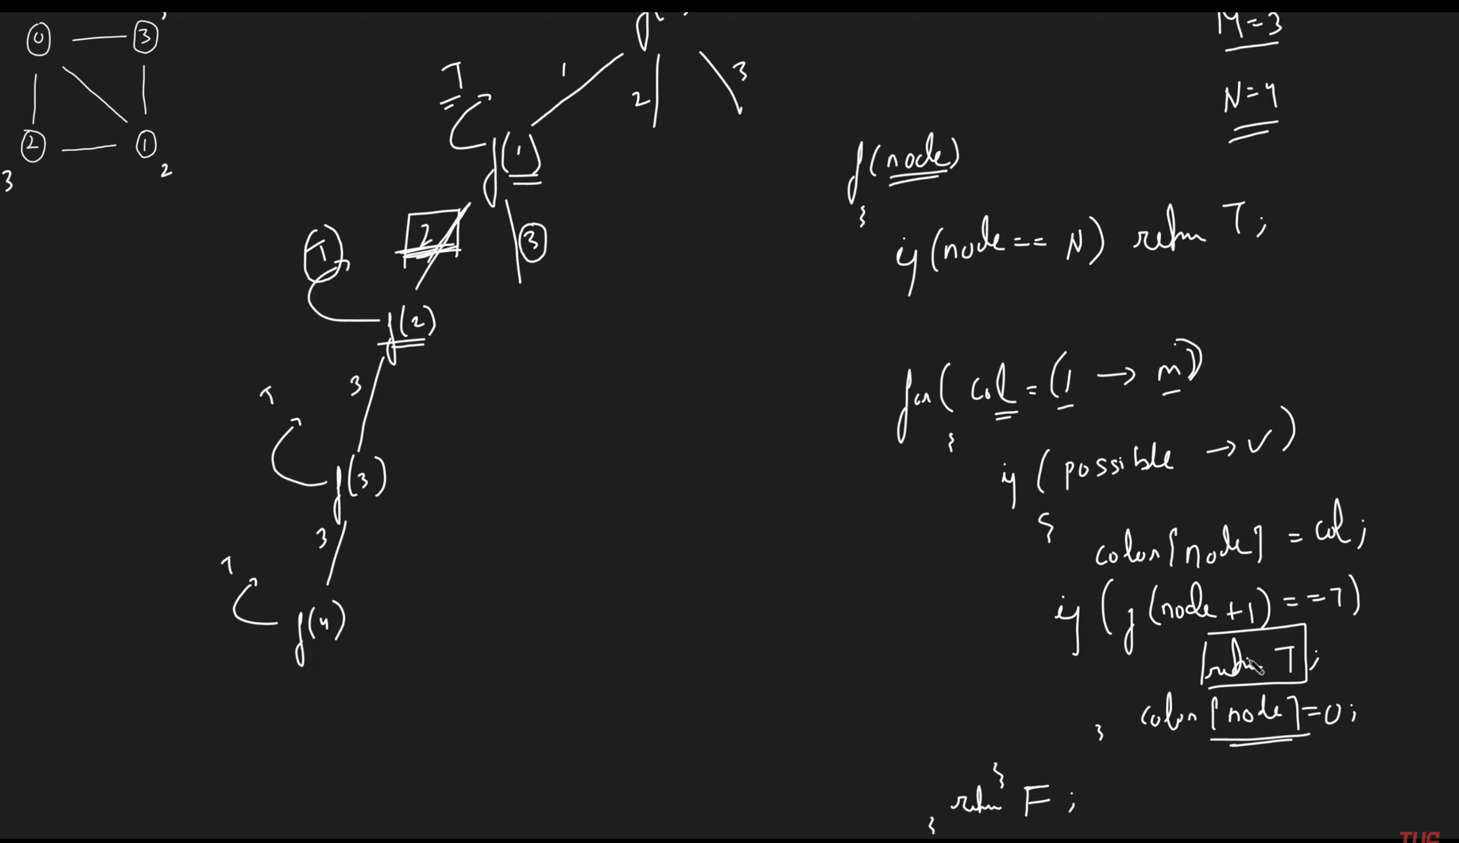 0
3
2
1
3
2
1
2
3
T
f(1)
2
3
T
f(2)
3
T
f(3)
3
T
f(4)
M=3
N=4
f(node)
{
if(node == N) return T;
for( col = (1 → m)
{
if( possible → ✓)
{
color[node] = col;
if(f(node+1) == T)
return T;
color[node]=0;
}
}
return F;
}